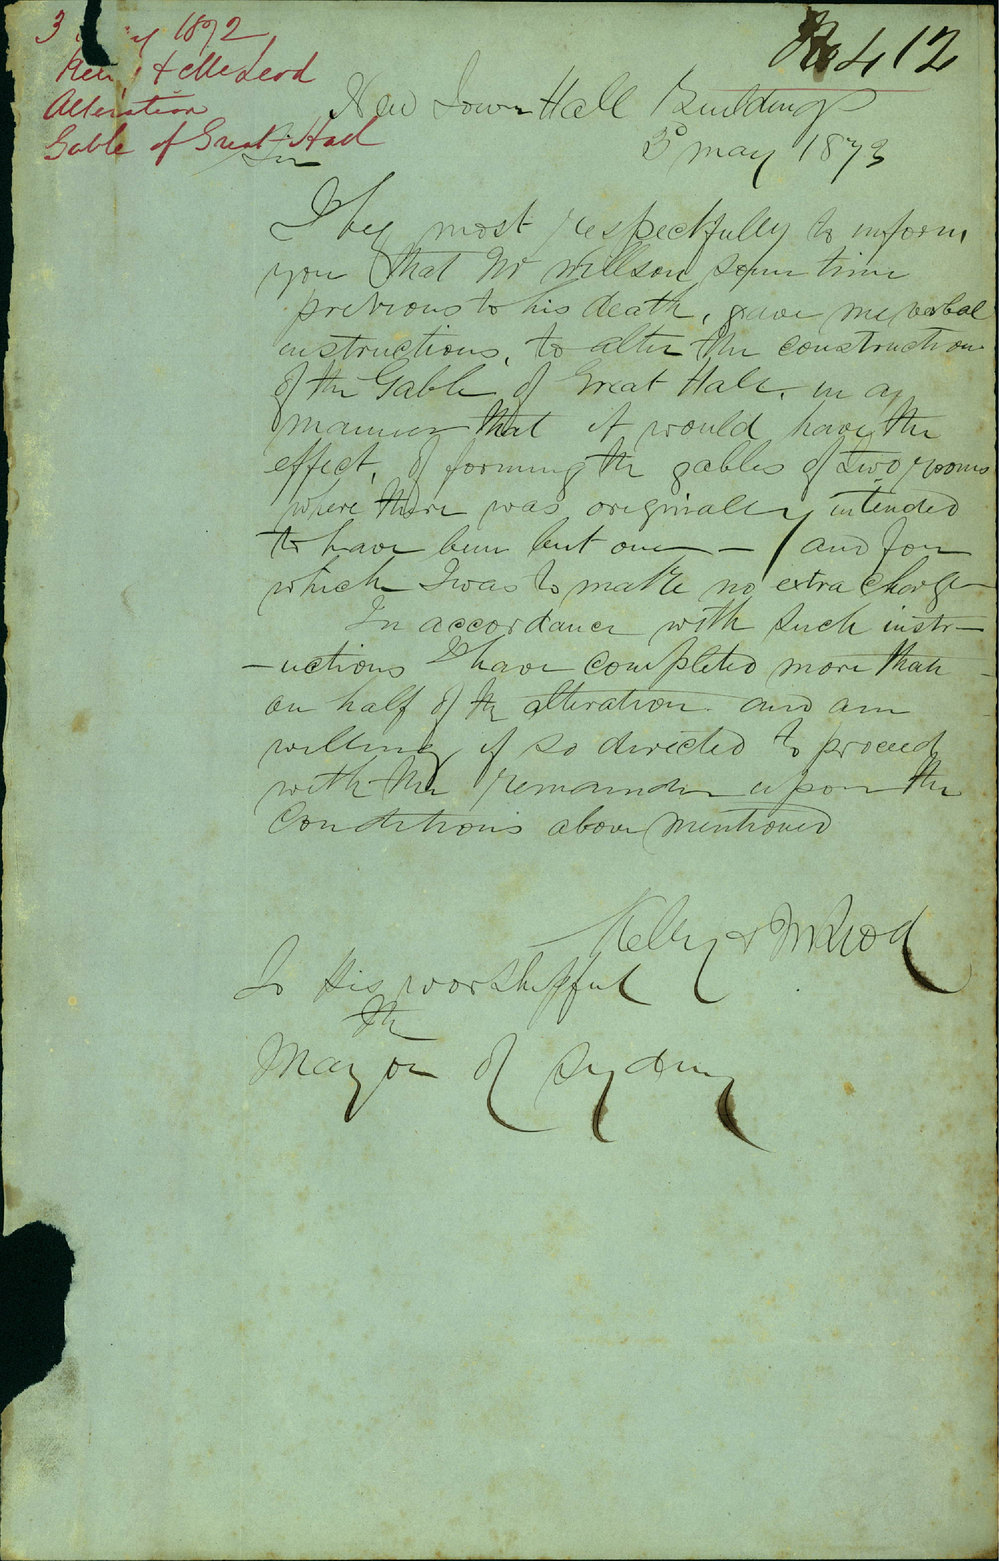 3 May 1872
Kelly & McLeod
Alteration
Gable of Great Hall
No 412
New Town Hall Buildings
3d may 1873
Sir
I beg most respectfully to inform
you that Mr Willson some time
previous to his death, gave me verbal
instructions, to alter the construction
of the Gable of Great Hall. in a
manner that it would have the
effect, of forming the gables of two rooms
where there was originally intended
to have been but one — and for
which I was to make no extra charge
In accordance with such instr-
-uctions I have completed more than
on half of the alteration and am
willing if so directed to proceed
with the remainder upon the
Conditions above mentioned
Kelly & McLeod
To His worshipful
the
Mayor of Sydney